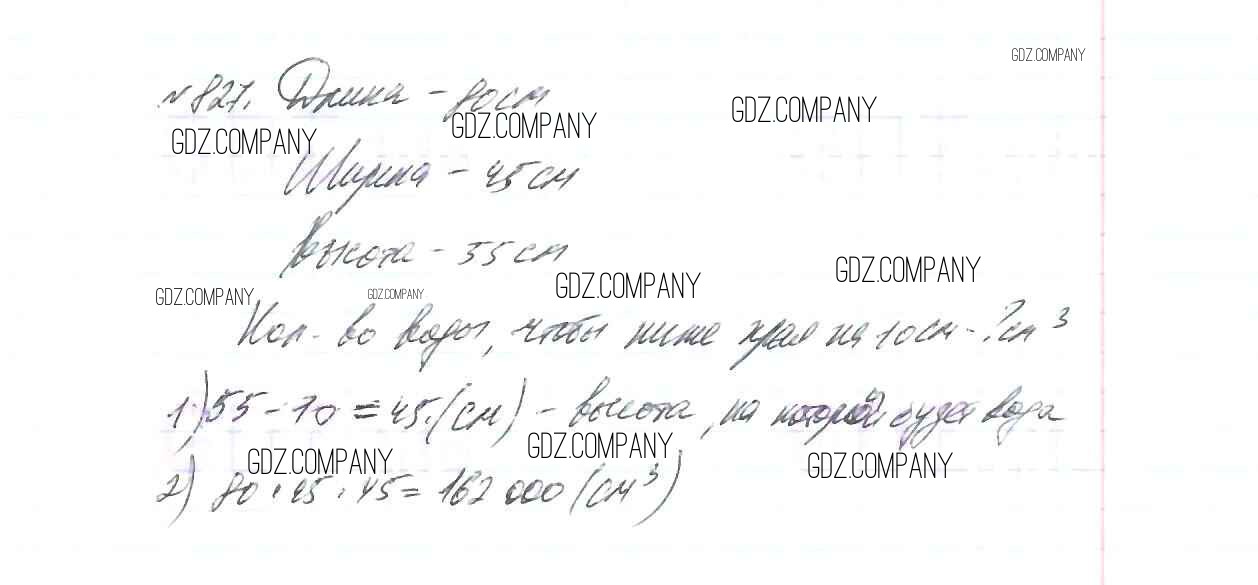 GDZ.COMPANY
№ 827. Длина - 80 см
GDZ.COMPANY GDZ.COMPANY GDZ.COMPANY
Ширина - 45 см
Высота - 55 см
GDZ.COMPANY GDZ.COMPANY GDZ.COMPANY GDZ.COMPANY
Кол-во воды, чтобы ниже края на 10 см - ? см³
1) 55 - 10 = 45 (см) - высота, на которой будет вода
GDZ.COMPANY GDZ.COMPANY GDZ.COMPANY
2) 80 · 45 · 45 = 162 000 (см³)